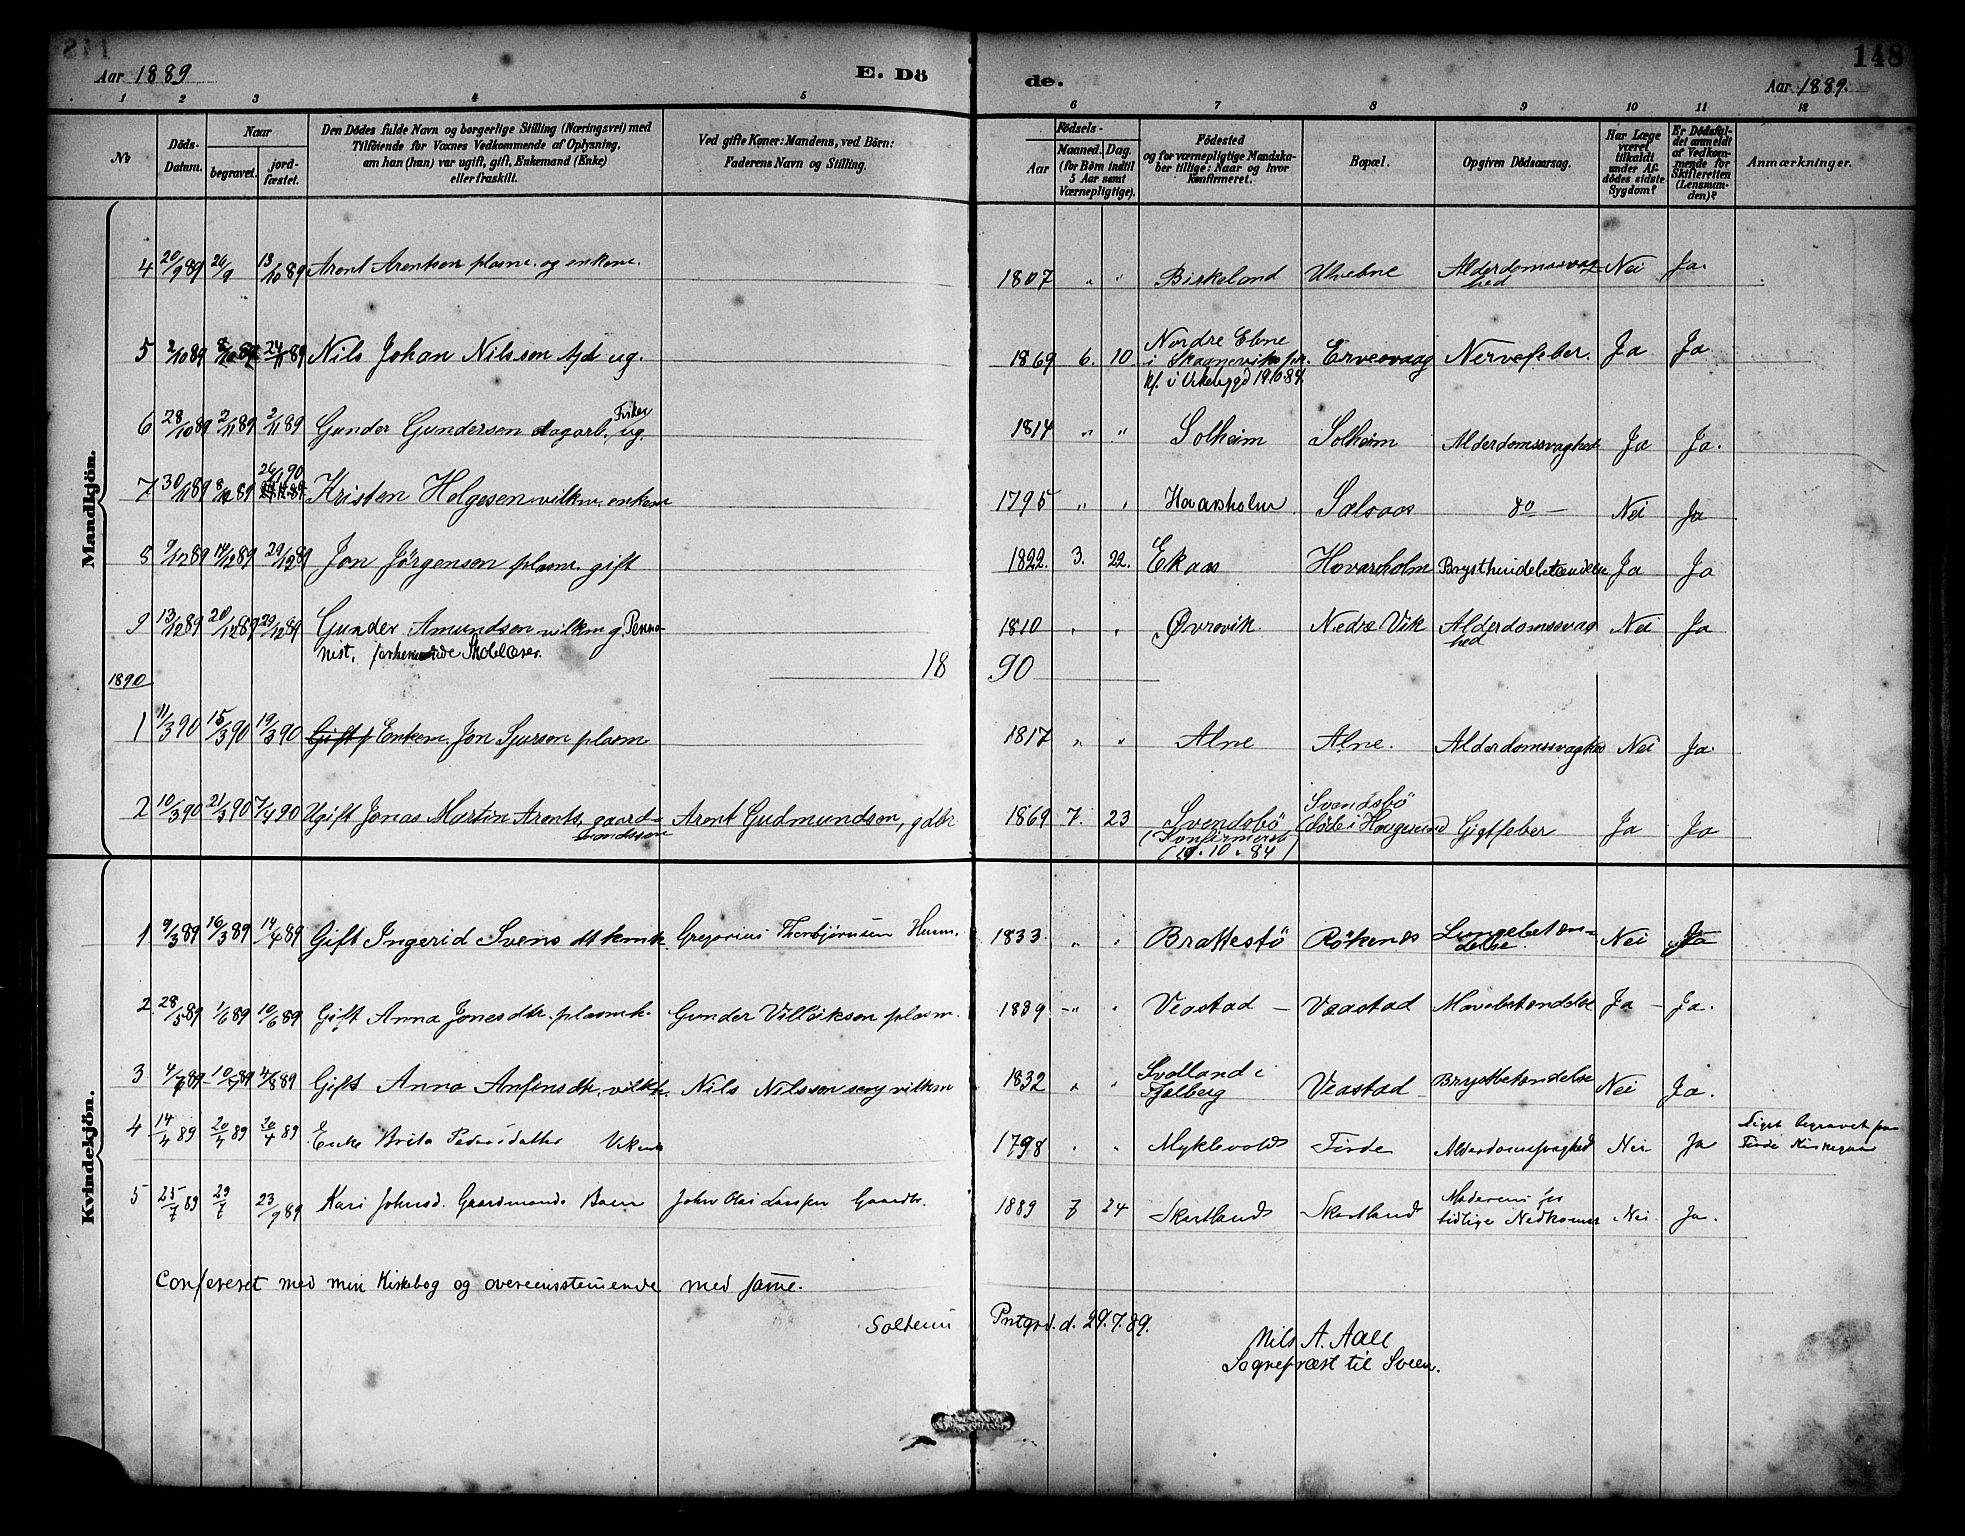 148
Aar 1889 E. Dö de. Aar 1889.
1 2 3 4 5 6 7 8 9 10 11 12
No
Döds-Datum.
Naar
begravet.
jord-fæstet.
Den Dödes fulde Navn og borgerlige Stilling (Næringsvei) med
Tilföiende for Voxnes Vedkommende af Oplysning,
om han (hun) var ugift, gift, Enkemand (Enke)
eller fraskilt.
Ved gifte Koner: Mandens, ved Börn:
Faderens Navn og Stilling.
Födsels-
Aar
Maaned. Dag.
(for Börn indtil
5 Aar samt
Værnepligtige).
Födested
og for værnepligtige Mandska-
ber tillige: Naar og hvor
konfirmeret.
Bopæl.
Opgiven Dödsaarsag.
Har Læge
været
tilkaldt
under Af-
dödes sidste
Sygdom?
Er Dödsfal-
det anmeldt
af Vedkom-
mende for
Skifteretten
(Lensman-
den)?
Anmærkninger.
Mandkjön.
4 20/9 89 26/9 13/10 89 Arent Arentsen plasm. og enkem. 1807 " " Birkeland Utvebne Alderdomssvag Nei Ja.
hed
5 2/10 89 8/10 89 24/11 89 Nils Johan Nilsson ug. 1869 6. 10. Nordre Ebne Ervesvaag Nervefeber. Ja Ja.
i Skaanevik pr.
kf. i Ølensbygd 19.10.84.
6 28/10 89 2/11 89 2/11 89 Gunder Gundersen dagarb. Fisker ug. 1814 " " Solheim Solheim Alderdomssvaghed Ja Ja.
7 30/11 89 8/12 89 26/1 90 Kristen Helgesen vilkm. enkem 1795 " " Havarsholm Sælsaas do — Nei Ja
8 9/12 89 14/12 89 29/12 89 Jon Jörgensen plasm. gift 1822. 3. 22. Ekaas Hovarsholm Brysthindebetændelse Ja Ja
9 13/12 89 20/12 89 29/12 89 Gunder Amundsen vilkm og Penno- 1810 " " Øvrevik. Nedre Vik Alderdomssvag Nei Ja
nist, forhenværende Skolelærer. hed
1890 18 90
1 11/3 90 15/3 90 19/3 90 Gift Enkem. Jon Sjurson plasm 1817 " " Alne Alne. Alderdomssvaghed Nei Ja.
2 10/3 90 21/3 90 7/4 90 Ugift Jonas Martin Arents. gaard- Arent Gudmundsen, gdbr 1869 7. 23 Svendsbö Svendsbö Gigtfeber Ja Ja
mandssön (Konfirmeret (döde i Haugesund
19.10.84)
Kvindekjön.
1 9/3 89 16/3 89 14/4 89 Gift Ingerid Svens dt. Gregorius Thorbjørnsen Husm. 1833. " " Brattestö Rökenes Lungebetæn- Nei Ja
delse
2 28/5 89 1/6 89 10/6 89 Gift Anna Jonesdtr. plasmk. Gunder Villikson plasm. 1839 " " Veastad Veastad Mavebetændelse Ja Ja.
3 4/7 89 10/7 89 4/8 89 Gift Anna Anfinsdtr. vilkk. Nils Nilsson vilkm 1832 " " Svolland i Veastad Brystbetændelse Nei Ja.
Fjelberg
4 14/4 89 20/4 89 20/4 89 Enke Brita Pedersdatter 1798 " " Myklevold Tirde Alderdomssvaghed Nei Ja Liget begravet paa
5 25/7 89 29/7 23/9 89 Kari Johnsd. Gaardmands Barn John Olai Larssen Gaardbr. 1889 7 24 Skartland Skartland Moderens for Nei Ja.
tidlige Nedkomst
Confereret med min Kirkebog og overensstemende med samme.
Solheim Prstgrd. d. 29.7.89.
Nils A. Aall
Sogneprest til Sveen.